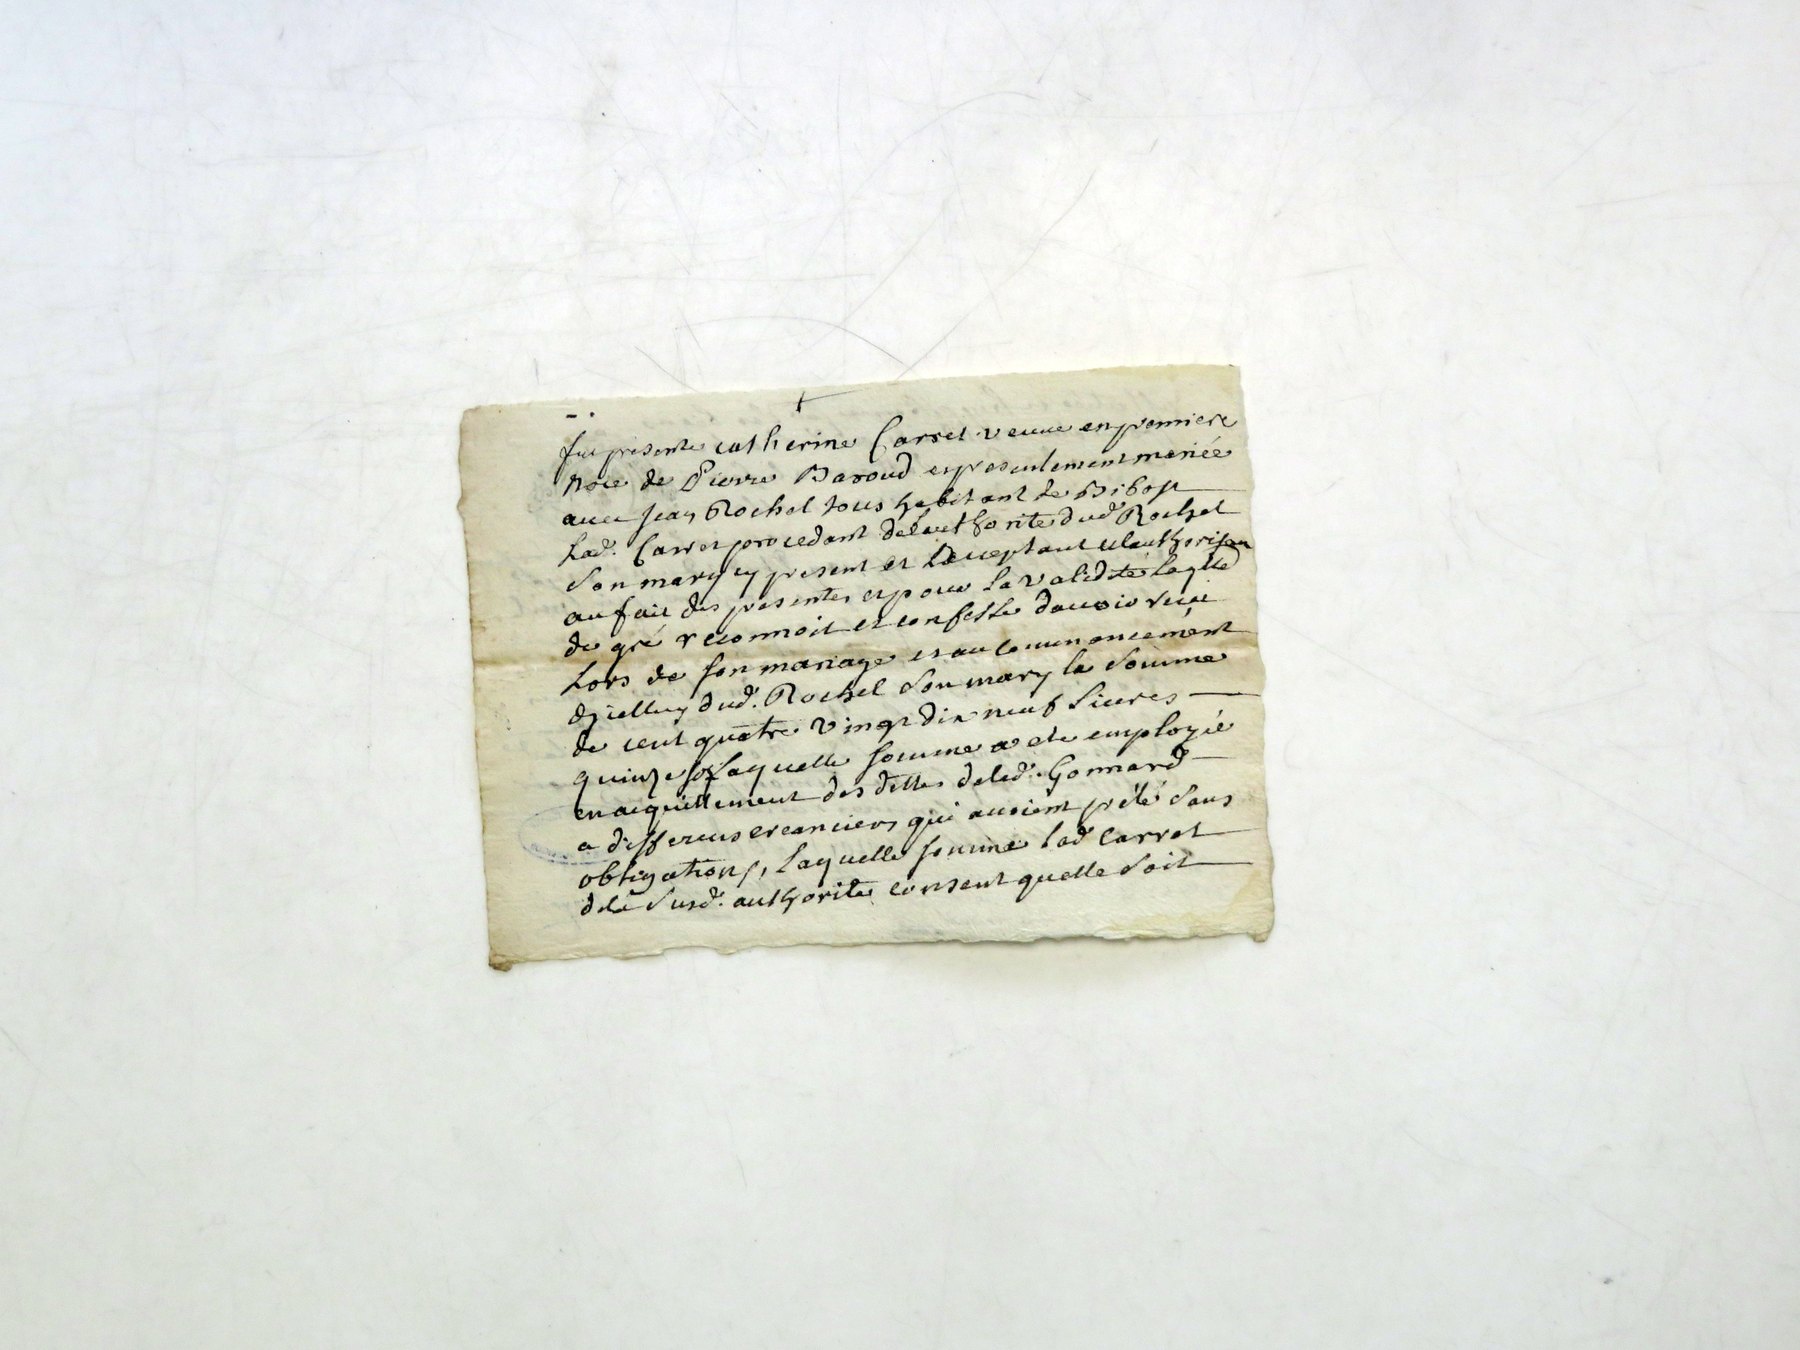 fut presente catherine Carret veuve en premiere
Noce de Pierre Baroud et presentement mariée
avec Jean Rochel tous habitant de Bibost
Lad. Carret procedant delauthorité dud Rochel
Son mary cy present et Lacceptant et lauthorisan
au fait des presentes et pour la validité laqlle
de gré reconnoit et confesse davoir recu
Lors de son mariage et au commancement
dycelluy dud. Rochel Son mary la Somme
de cent quatre vingt dix neuf Livres
quinze s laquelle somme a ete employée
en acquittement des dettes delad. Gonnard
a differens creanciers qui avoient prété Sans
obligations, Laquelle somme lad Carret
dela Susd. authorité consent quelle Soit